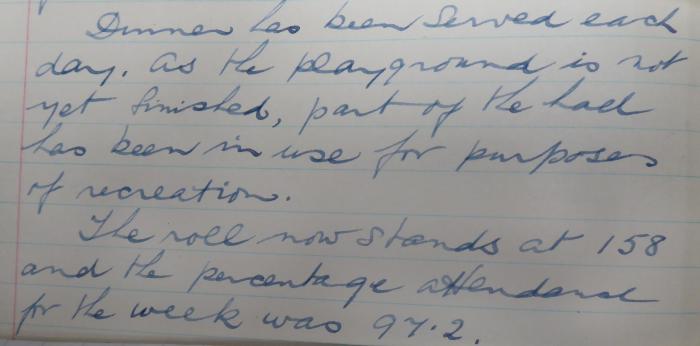 Dinner has been served each
day. As the playground is not
yet finished, part of the hall
has been in use for purposes
of recreation.
The roll now stands at 158
and the percentage attendance
for the week was 97.2.